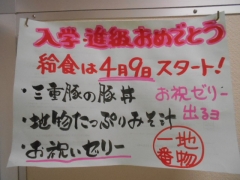 入学進級おめでとう
給食は4月9日スタート!
・三重豚の豚丼
お祝ゼリー
出るヨ
・地物たっぷりみそ汁
・お祝いゼリー
地物
一番